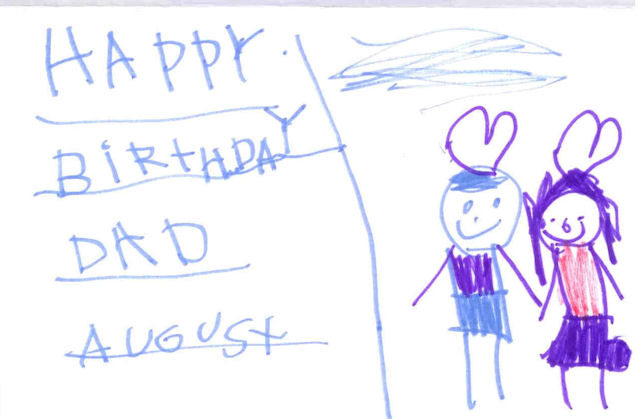 HAPPY.
BiRtHDAY
DAD
AUGUSt